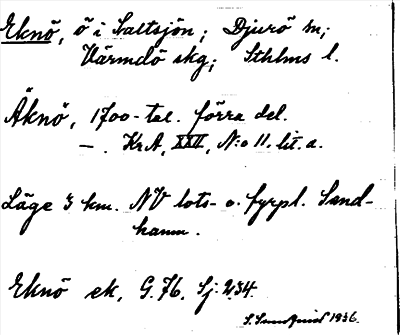 Eknö, ö i Saltsjön; Djurö sn;
Värmdö skg; Sthlms l.
Äknö, 1700-tal. förra del.
— . Kr.A, XXII, N:o 11. lit. a.
Läge 3 km. NV lots- o. fyrpl. Sand-
hamn.
Eknö ek, G.76, Sj: 234.
S. Sundquist 1936.